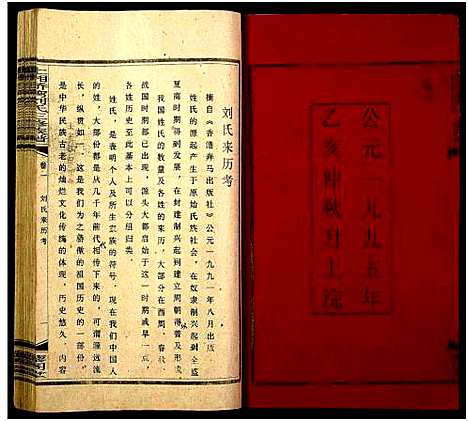 公元一九九五年
乙亥仲秋月上浣
刘氏来历考
摘自《香港奔马出版社》公元一九九一年八月出版
姓氏的源起产生于原始氏族社会，在奴隶制兴起到全盛
夏商时期得到发展，在封建制兴起到建立周朝得普及形成
我国姓氏的数量及各姓的来历，大部分在西周、春秋、
战国时期都已出现，源头大都启于这一时期或早一点，
各姓历史大部分都可以分组归类。
姓氏，是表明个人及所生家族的符号，现在我们中国人
的姓，大部份都是从几千年前代代相传下来，可谓源远流
长，纵贯如一，这是我们为之骄傲的祖国历史的一部份，
是中华民族古老的灿烂文化传绵的体现，历史悠久，内容
卷一
刘氏来历考